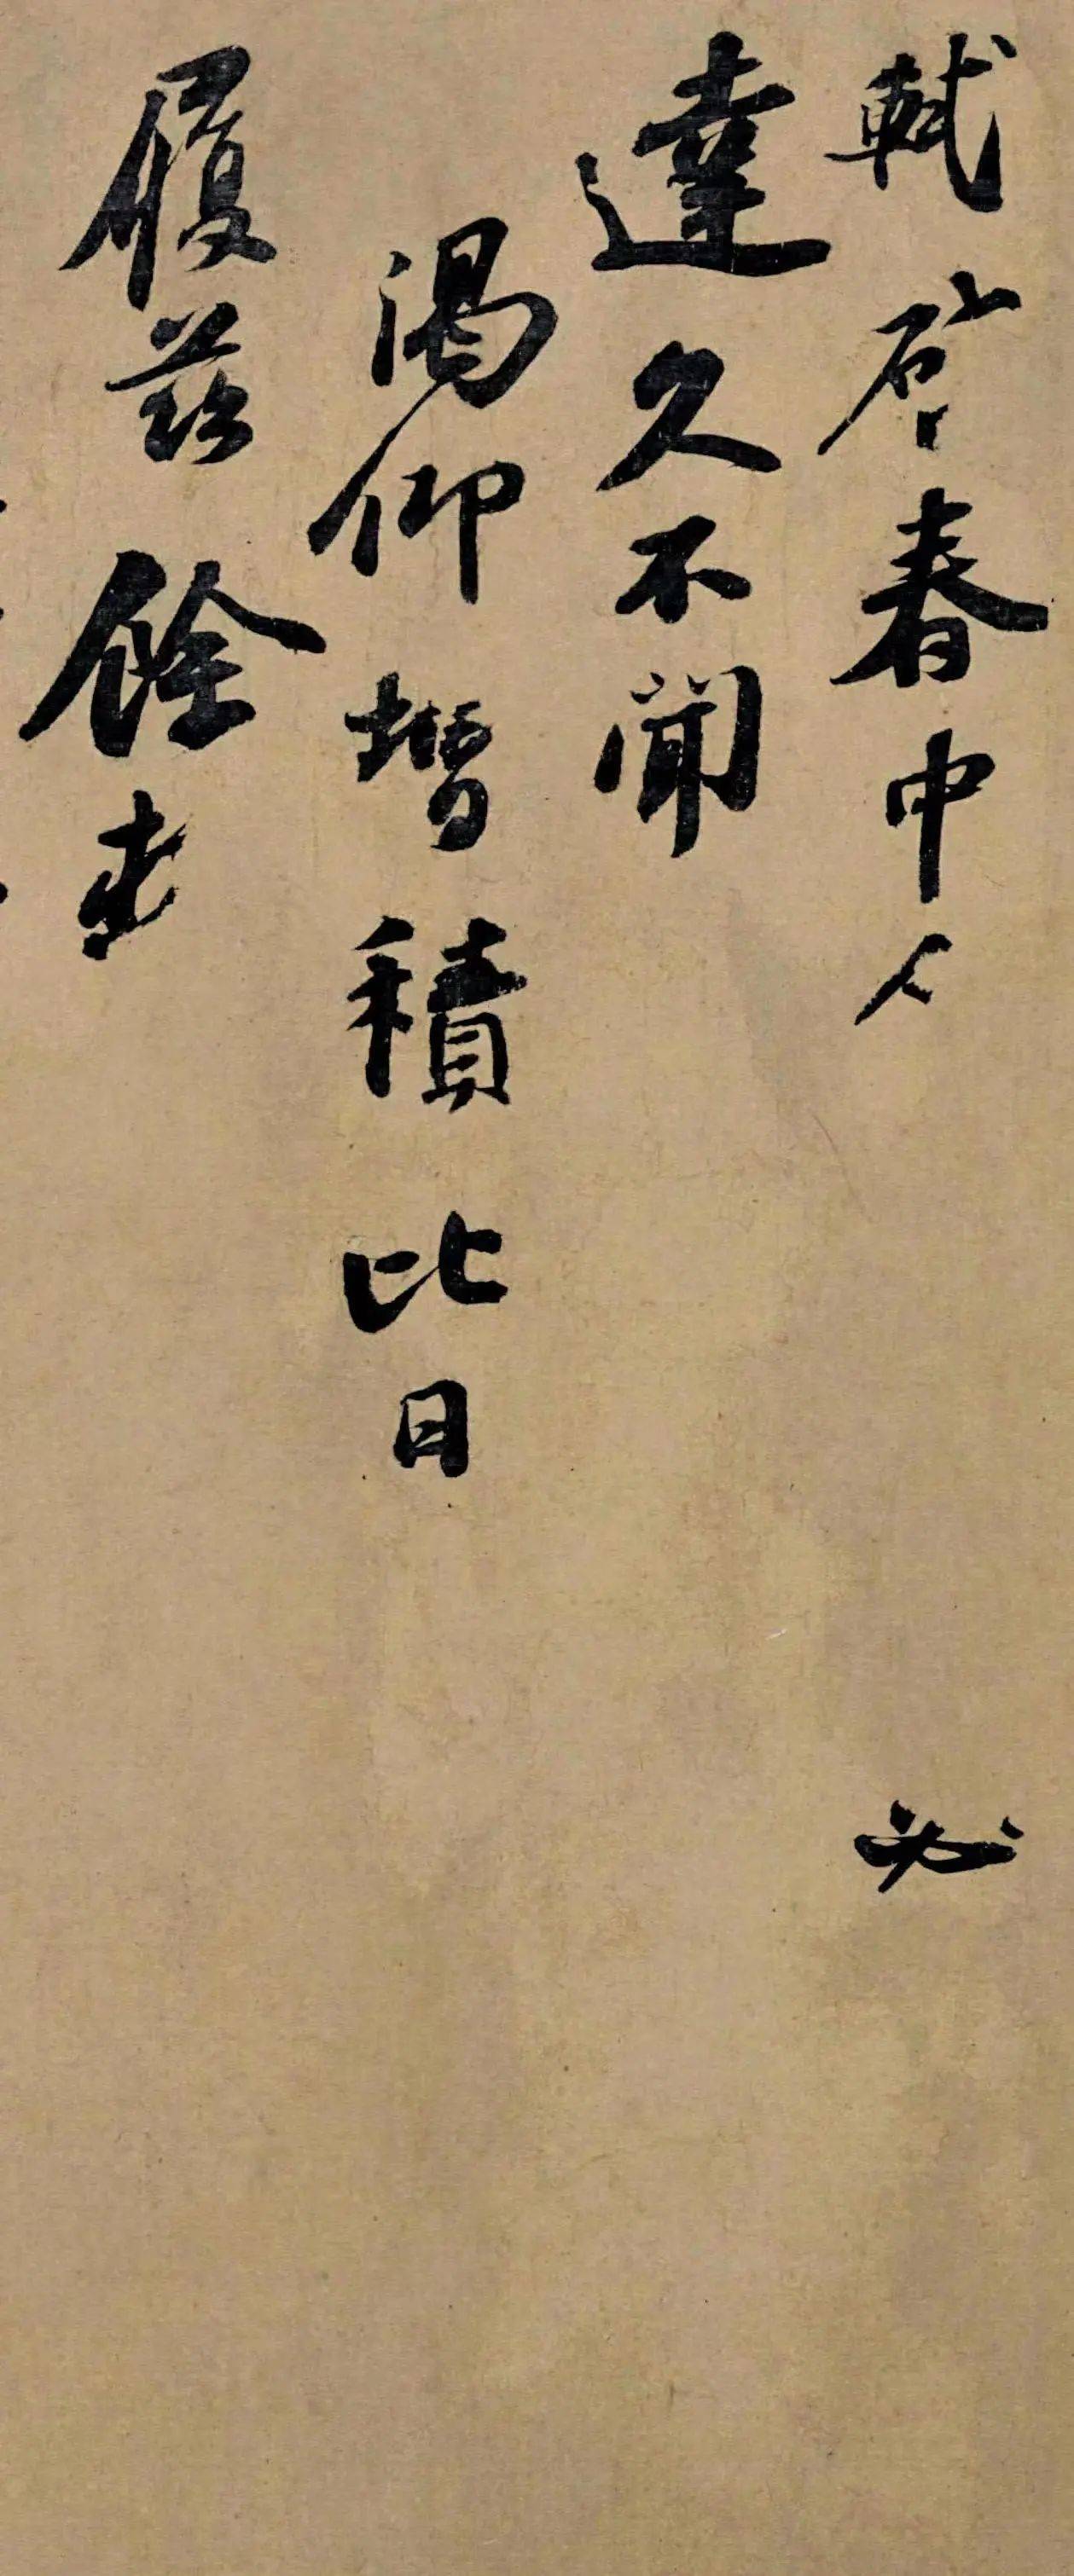 軾啓春中人 必
達久不聞
渴仰增積比日
履茲餘春